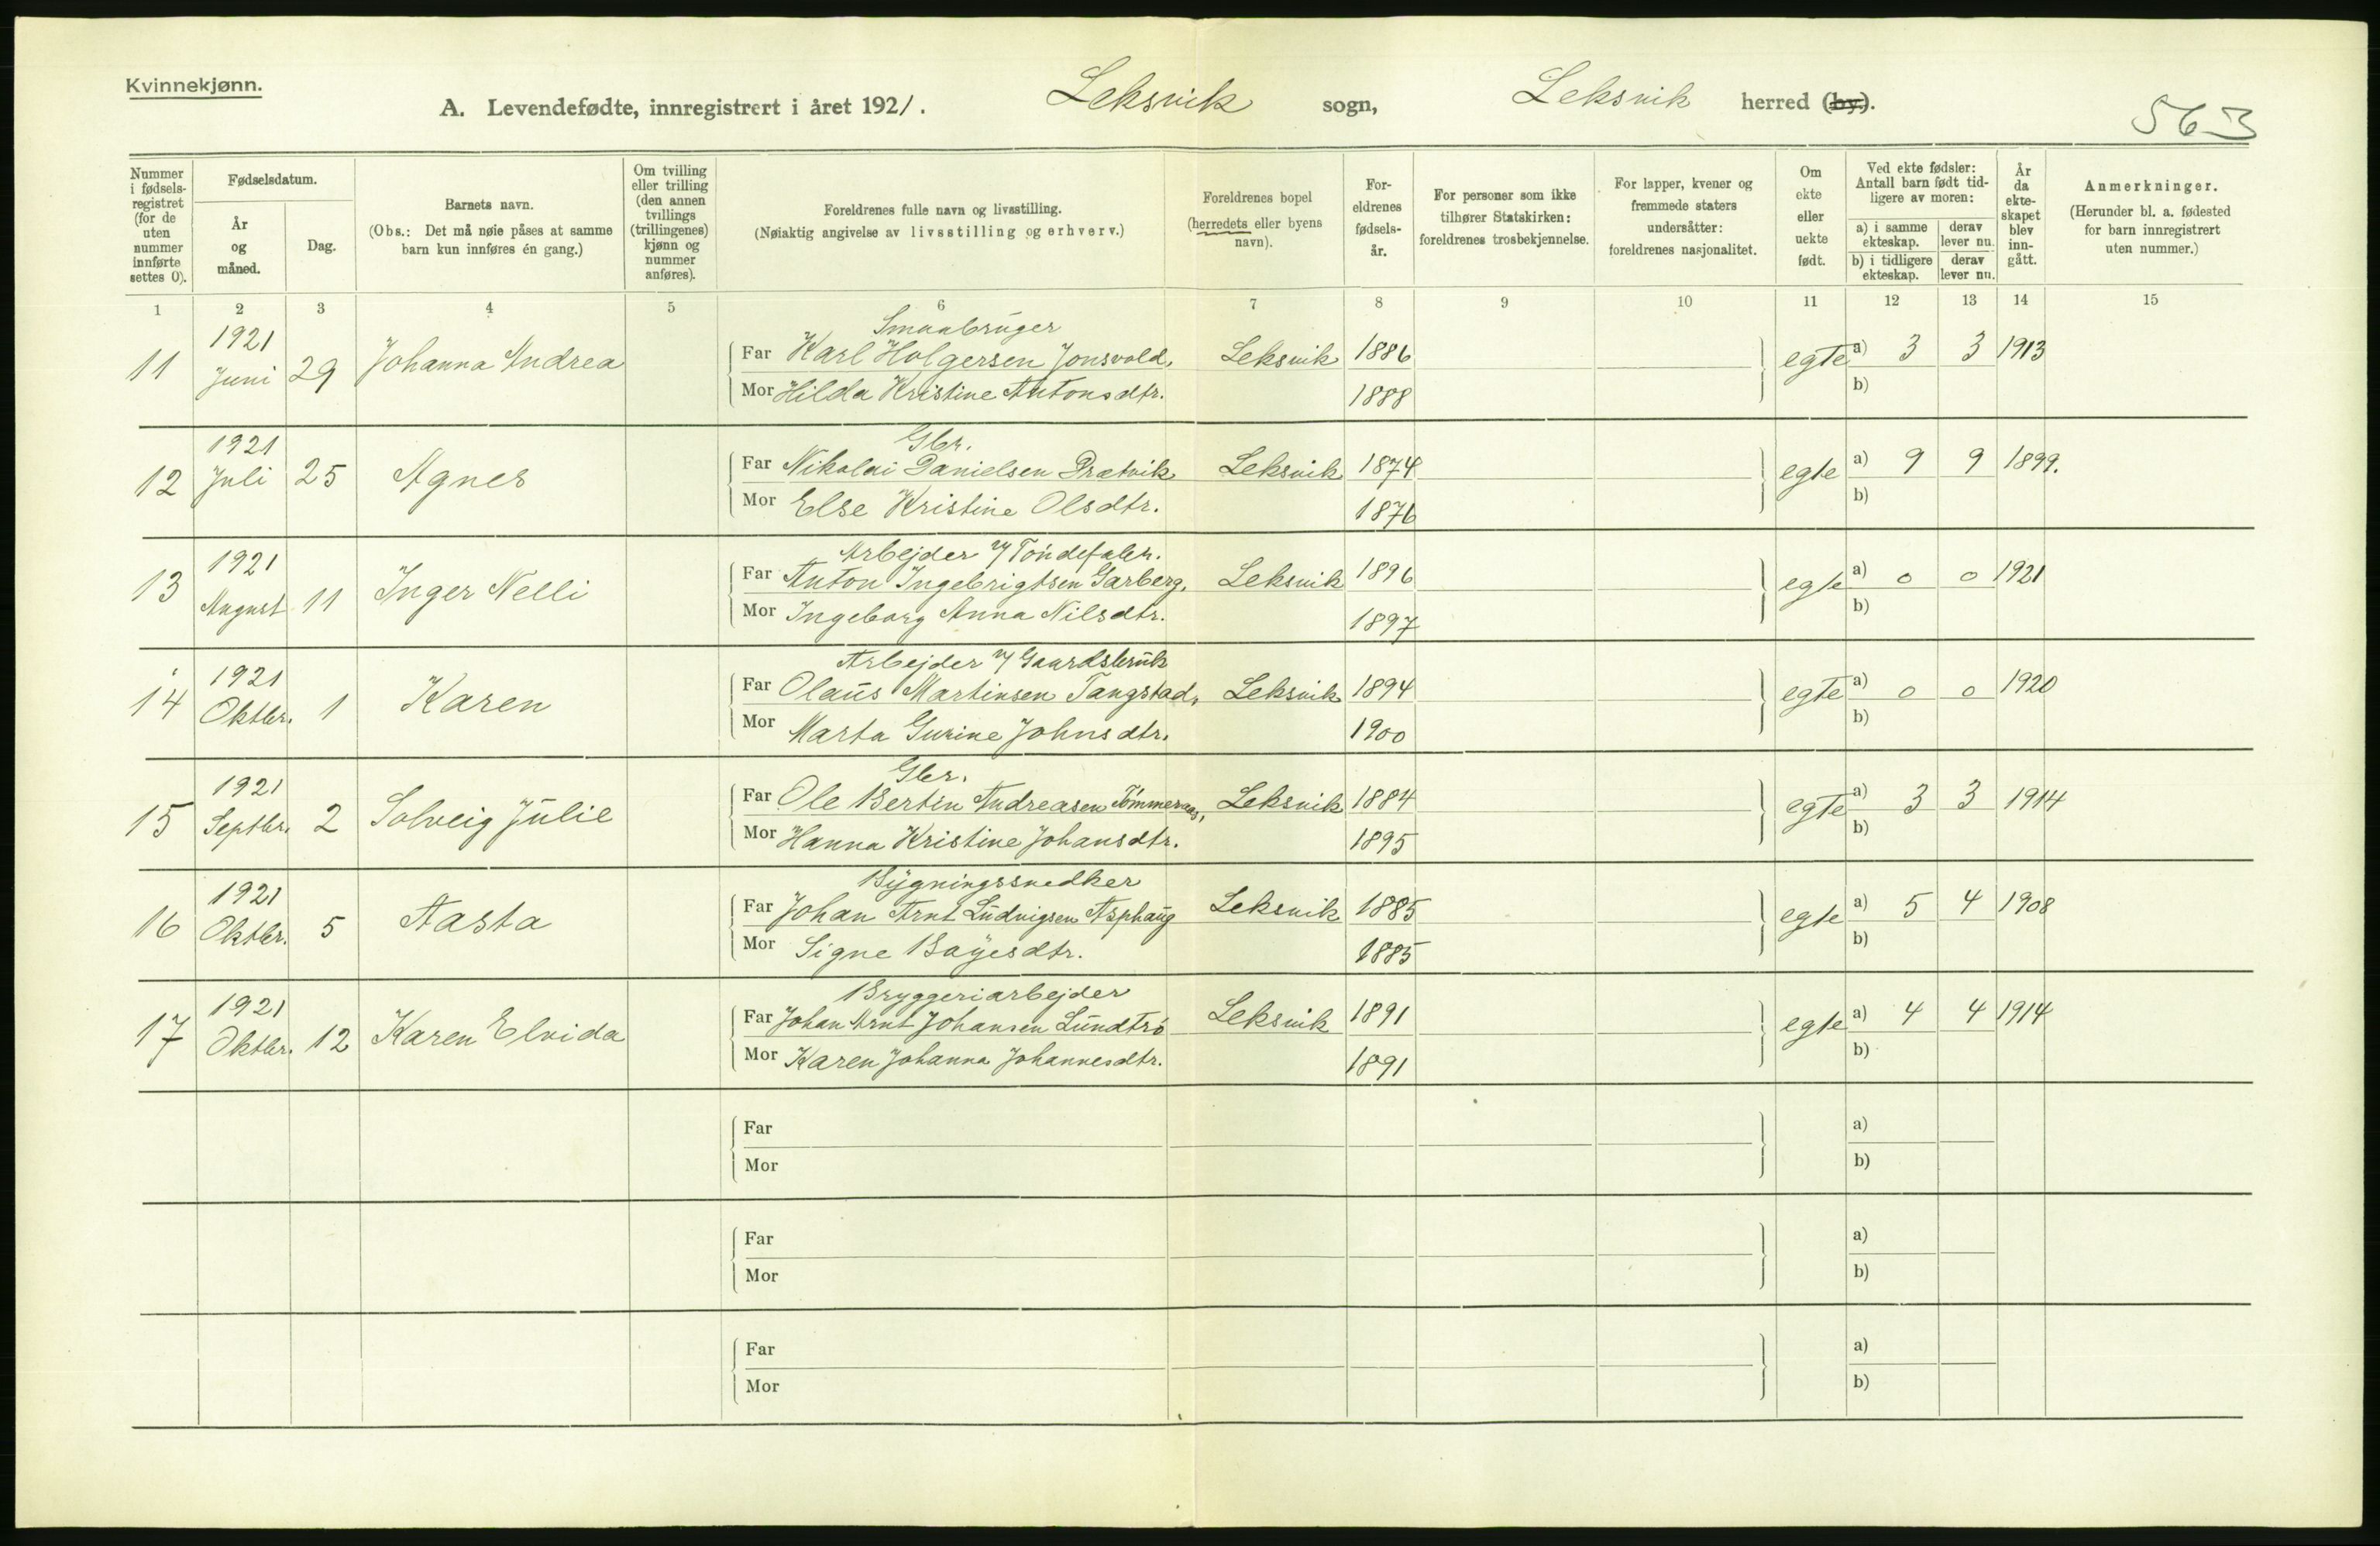 Kvinnekjønn.
A. Levendefødte, innregistrert i året 1921. Leksvik sogn, Leksvik herred (by).
563
Nummer i fødsels-registret (for de uten nummer innførte settes 0).
Fødselsdatum.
År og måned.
Dag.
Barnets navn.
(Obs.: Det må nøie påses at samme barn kun innføres én gang.)
Om tvilling eller trilling (den annen tvillings (trillingenes) kjønn og nummer anføres).
Foreldrenes fulle navn og livsstilling.
(Nøiaktig angivelse av livsstilling og erhverv.)
Foreldrenes bopel (herredets eller byens navn).
For-eldrenes fødsels-år.
For personer som ikke tilhører Statskirken: foreldrenes trosbekjennelse.
For lapper, kvener og fremmede staters undersåtter: foreldrenes nasjonalitet.
Om ekte eller uekte født.
Ved ekte fødsler: Antall barn født tid-ligere av moren:
a) i samme ekteskap. derav lever nu.
b) i tidligere ekteskap. derav lever nu.
År da ekte-skapet blev inn-gått.
Anmerkninger.
(Herunder bl. a. fødested for barn innregistrert uten nummer.)
1 2 3 4 5 6 7 8 9 10 11 12 13 14 15
Smaabruger
11 1921 Juni 29 Johanna Andrea Far Karl Holgersen Jonsvold, Leksvik 1886 egte a) 3 3 1913
Mor Hilda Kristine Antonsdtr. 1888 b)
Gbr.
12 1921 Juli 25 Agnes Far Nikolai Danielsen Prætvik Leksvik 1874 egte a) 9 9 1899.
Mor Else Kristine Olsdtr. 1876 b)
Arbejder v/ Töndefabr.
13 1921 August 11 Inger Nelli Far Anton Ingebrigtsen Garberg, Leksvik 1896 egte a) 0 0 1921
Mor Ingeborg Anna Nilsdtr. 1897 b)
Arbejder v/ Gaardsbruk
14 1921 Oktbr. 1 Karen Far Olaus Martinsen Tangstad, Leksvik 1894 egte a) 0 0 1920
Mor Marta Gurine Johnsdtr. 1900 b)
Gbr.
15 1921 Septbr. 2 Solveig Julie Far Ole Bertin Andreasen Tömmeraas, Leksvik 1884 egte a) 3 3 1914
Mor Hanna Kristine Johansdtr. 1895 b)
Bygningssnedker
16 1921 Oktbr. 5 Aasta Far Johan Arnt Ludvigsen Asphaug Leksvik 1885 egte a) 5 4 1908
Mor Signe Bøyesdtr. 1885 b)
Bryggeriarbejder
17 1921 Oktbr. 12 Karen Elvida Far Johan Arnt Johansen Lundtrö Leksvik 1891 egte a) 4 4 1914
Mor Karen Johanna Johannesdtr. 1891 b)
Far a)
Mor b)
Far a)
Mor b)
Far a)
Mor b)